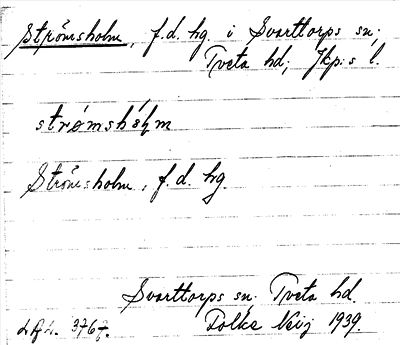 Strömsholm, f.d. hg. i Svarttorps sn;
Tveta hd; Jkp:s l.
strømshólm
Strömsholm, f.d. hg.
Svarttorps sn. Tveta hd.
Folke Neij 1939.